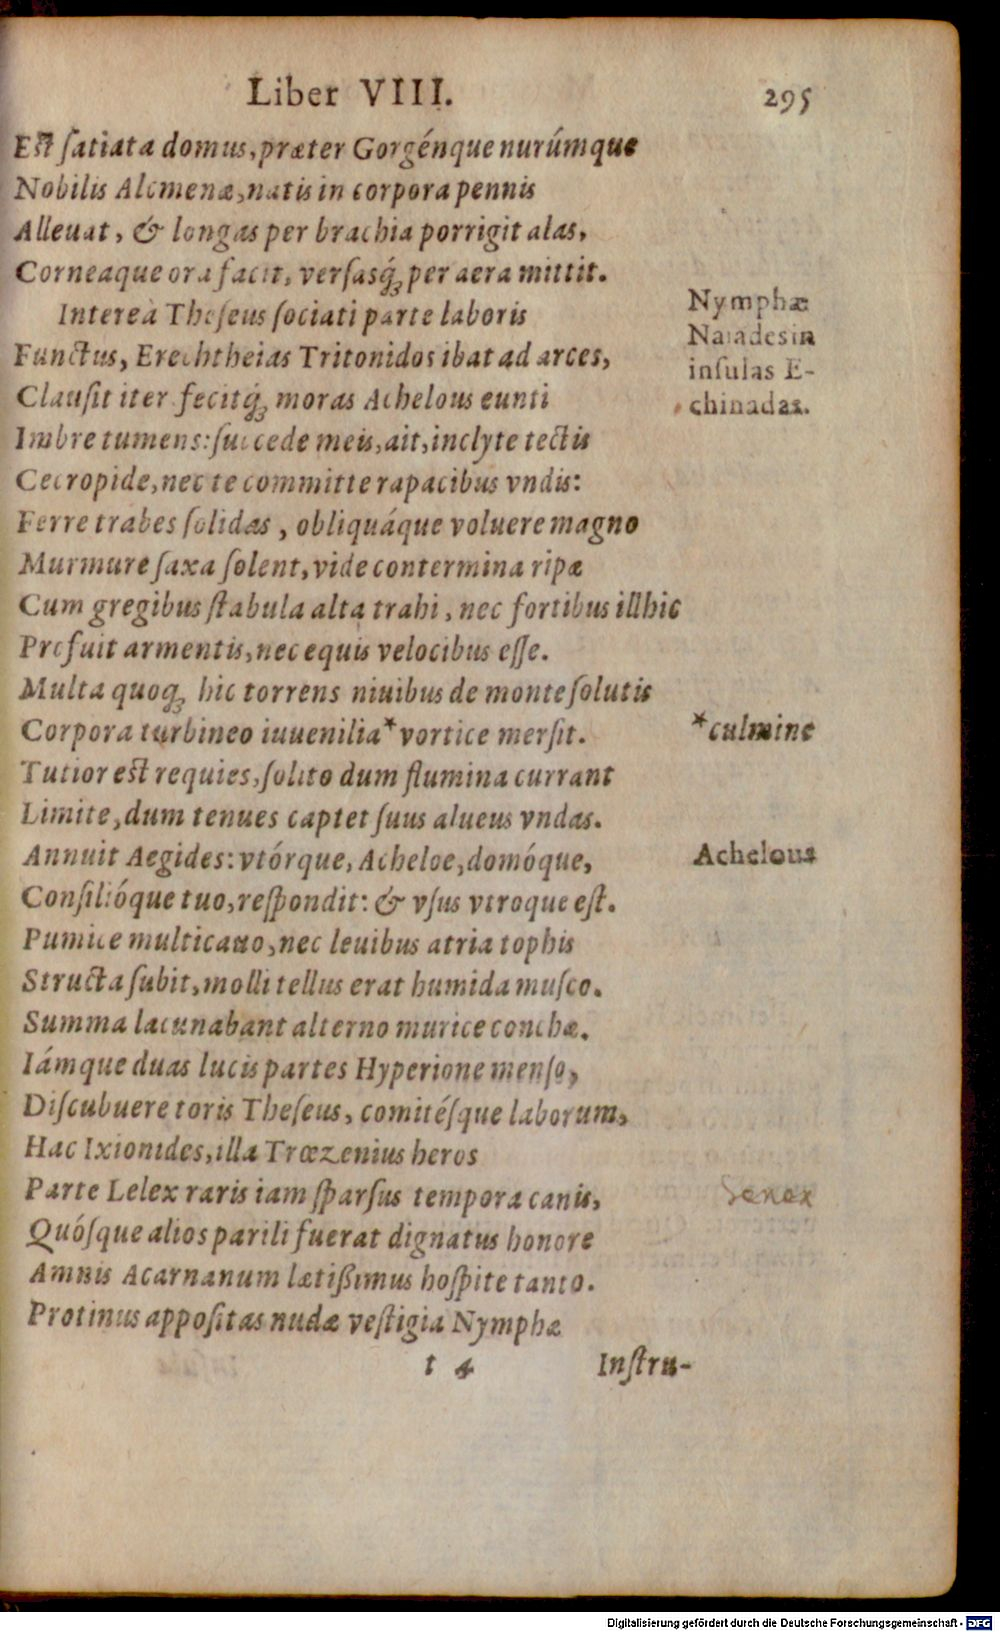 Liber VIII. 295
Eſt ſatiata domus, præter Gorgénque nurúmque
Nobilis Alcmenæ, natis in corpora pennis
Alleuat, & longas per brachia porrigit alas,
Corneaque ora facit, verſasq́ꝫ per aera mittit.
Intereà Theſeus ſociati parte laboris
Functus, Erechtheias Tritonidos ibat ad arces,
Clauſit iter fecitq́ꝫ moras Achelous eunti
Imbre tumens: ſuccede meis, ait, inclyte tectis
Cecropide, nec te committe rapacibus vndis:
Ferre trabes ſolidas, obliquáque voluere magno
Murmure ſaxa ſolent, vide contermina ripæ
Cum gregibus ſtabula alta trahi, nec fortibus illhic
Profuit armentis, nec equis velocibus eſſe.
Multa quoqꝫ hic torrens niuibus de monte ſolutis
Corpora turbineo iuuenilia * vortice merſit.
Tutior eſt requies, ſolito dum flumina currant
Limite, dum tenues captet ſuus alueus vndas.
Annuit Aegides: vtórque, Acheloe, domóque,
Conſilióque tuo, reſpondit: & vſus vtroque eſt.
Pumice multicauo, nec leuibus atria tophis
Structa ſubit, molli tellus erat humida muſco.
Summa lacunabant alterno murice conchæ.
Iámque duas lucis partes Hyperione menſo,
Diſcubuere toris Theſeus, comitéſque laborum,
Hac Ixionides, illa Trœzenius heros
Parte Lelex raris iam ſparſus tempora canis,
Quóſque alios parili fuerat dignatus honore
Amnis Acarnanum lætißimus hoſpite tanto.
Protinus appoſitas nudæ veſtigia Nymphæ
t 4 Inſtru-
Nymphæ
Naiades in
inſulas E-
chinadas.
* culmine
Achelous
Senex
Digitalisierung gefördert durch die Deutsche Forschungsgemeinschaft - DFG